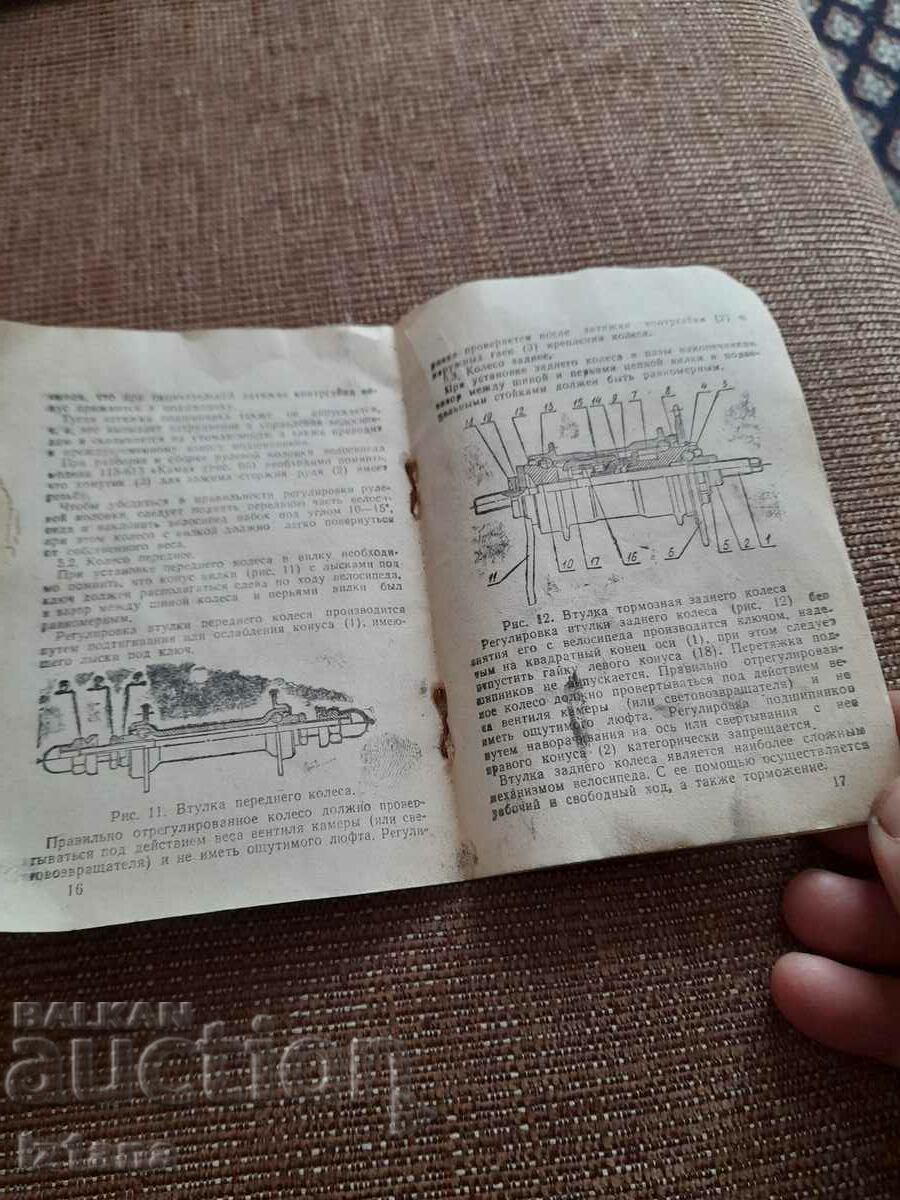 что при окончательной затяжке контргайка
прижимается к подшипнику.
Тугая затяжка подшипника также не допускается,
т. к. вызывает затруднения в управлении
и
к преждевременному износу подшипников.
При разборке и сборке рулевой колонки велосипеда
модели 113-613 «Кама» необходимо помнить,
что хомутик (3) для зажима стержня руля (2) имеет
резьбу.
Чтобы убедиться в правильности регулировки руле-
вой колонки, следует поднять переднюю часть велоси-
педа и наклонить велосипед набок под углом 10—15°,
при этом колесо с вилкой должно легко повернуться
от собственного веса.
5.2. Колесо переднее.
При установке переднего колеса в вилку необходи-
мо помнить, что конус вилки (рис. 11) с лысками под
ключ должен располагаться слева по ходу велосипеда,
а зазор между шиной колеса и перьями вилки был
равномерным.
Регулировка втулки переднего колеса производится
путем подтягивания или ослабления конуса (1), имею-
щего лыски под ключ.
Рис. 11. Втулка переднего колеса.
Правильно отрегулированное колесо должно провер-
тываться под действием веса вентиля камеры (или све-
товозвращателя) и не иметь ощутимого люфта. Регули-
16
ровка проверяется после затяжки контргайки (2) и
наружных гаек (3) крепления колеса.
5.3. Колесо заднее.
При установке заднего колеса в пазы наконечников
зазор между шиной и перьями цепной вилки и подсе-
дельными стойками должен быть равномерным.
18 19 12 13 15 14 9 7 8 4 3
11 10 17 16 6 5 2 1
Рис. 12. Втулка тормозная заднего колеса
Регулировка втулки заднего колеса (рис. 12) без
снятия его с велосипеда производится ключом, наде-
тым на квадратный конец оси (1), при этом следует
отпустить гайку левого конуса (18). Перетяжка под-
шипников не допускается. Правильно отрегулирован-
ное колесо должно провертываться под действием ве-
са вентиля камеры (или световозвращателя) и не
иметь ощутимого люфта. Регулировка подшипников
путем наворачивания на ось или свертывания с нее
правого конуса (2) категорически запрещается.
Втулка заднего колеса является наиболее сложным
механизмом велосипеда. С ее помощью осуществляется
рабочий и свободный ход, а также торможение.
17
BALKAN
auction
izlana